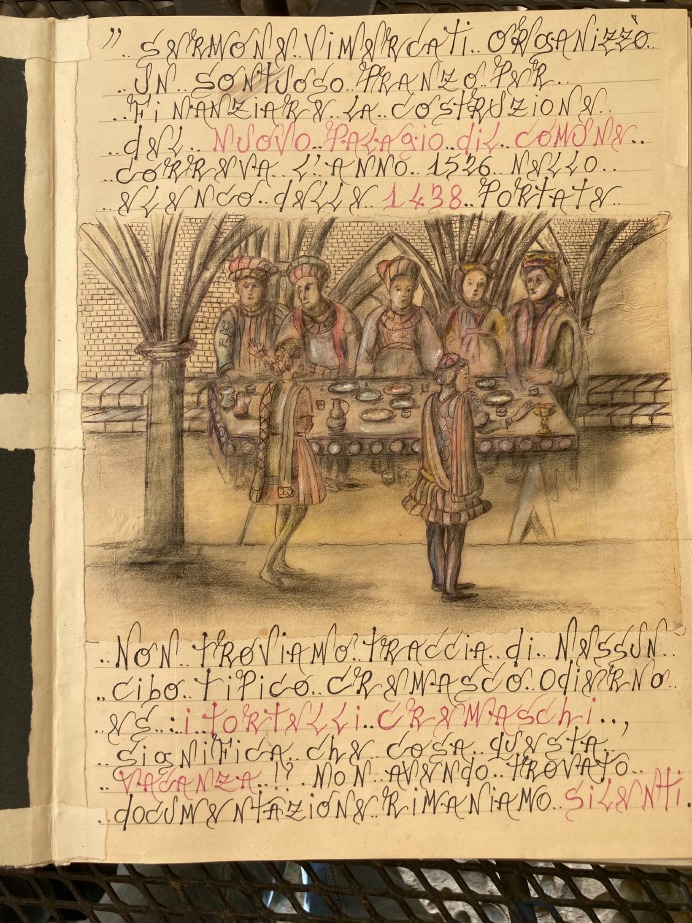 ” .. SERMONE.. VIMERCATI.. ORGANIZZÒ..
.. UN.. SONTUOSO.. PRANZO.. PER..
.. FINANZIARE.. LA.. COSTRUZIONE..
.. DEL.. NUOVO.. PALAGIO.. DEL.. COMUNE..
.. CORREVA.. L'ANNO.. 1526.. NELLO..
.. ELENCO.. DELLE.. 1438.. PORTATE..
.. NON.. TROVIAMO.. TRACCIA.. di.. NESSUN..
.. CIBO.. TIPICO.. CREMASCO.. OdiERNO..
.. NE.. : i TORTELLI.. CREMASCHI.. ,
.. SIGNIFICA.. CHE.. COSA.. QUESTA..
.. VACANZA.. !? NON.. AVENdO.. TROVATO..
.. dOCUMENTAZIONE.. RIMANIAMO.. SILENTI.